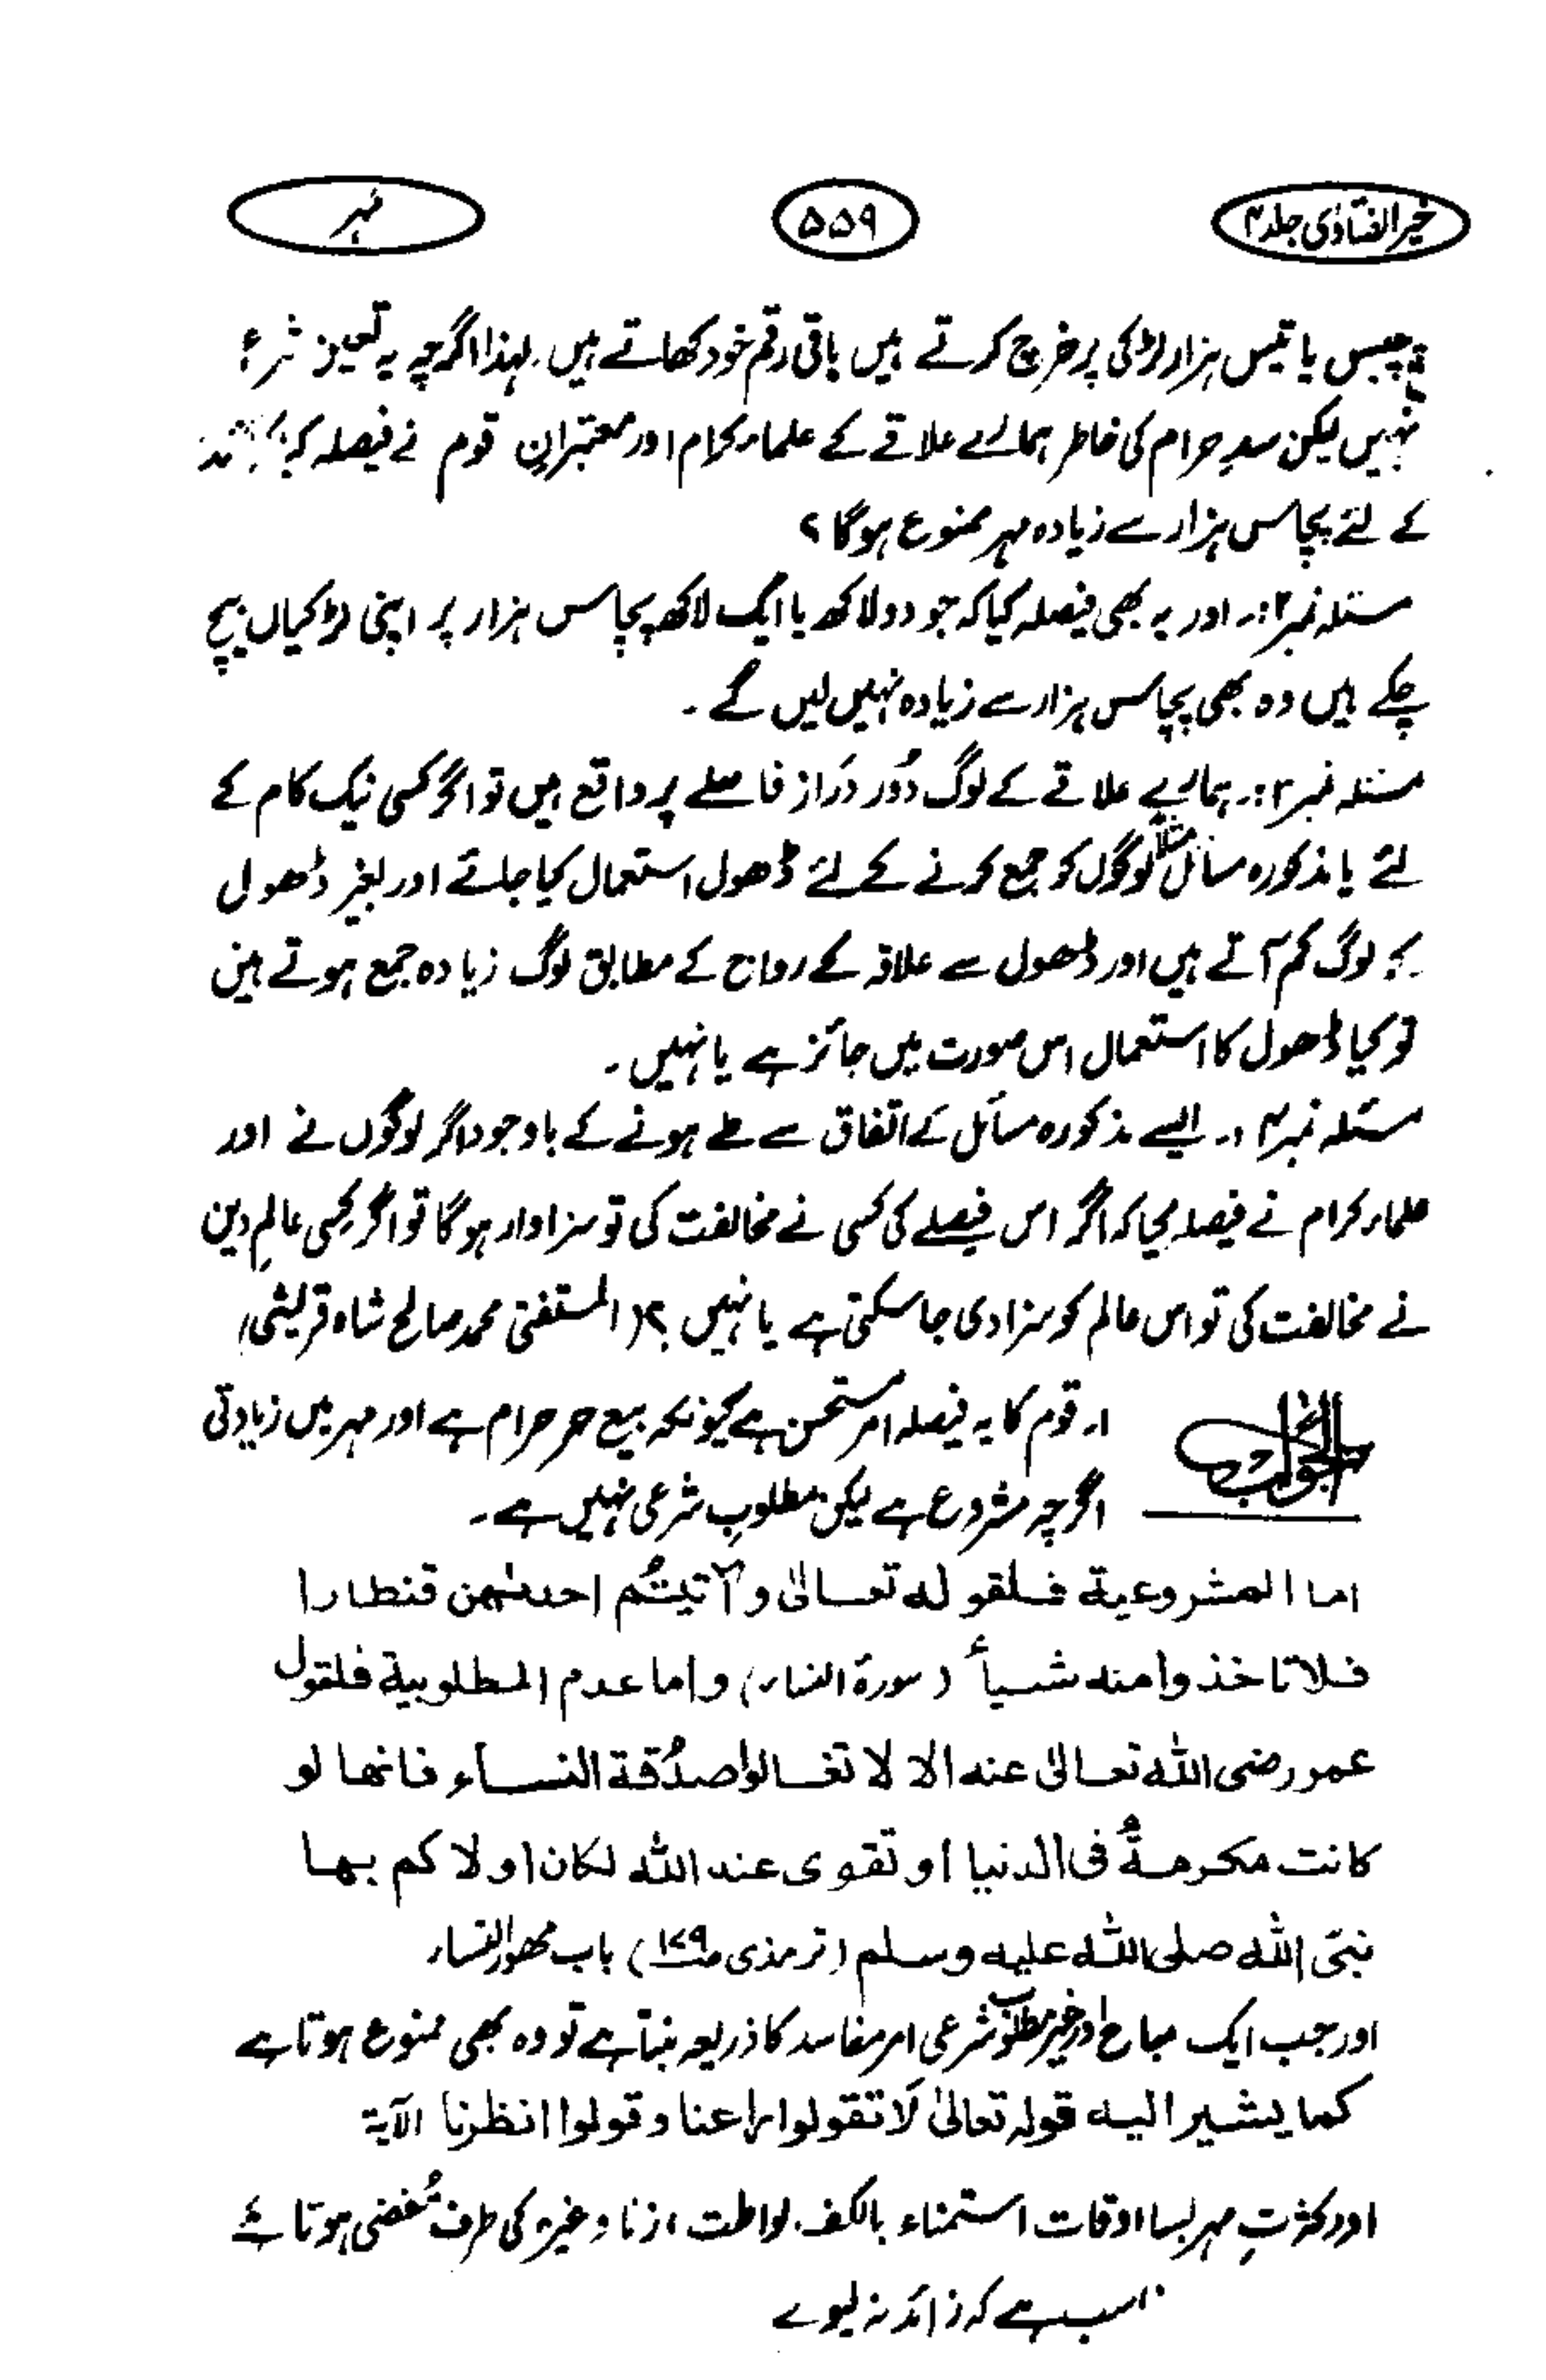 خیر الفتاوٰی جلد ۴
۵۵۹
مہر
پچیس یا تیس ہزار لڑکی پر خرچ کرتے ہیں باقی رقم خود کھاتے ہیں۔ لہذا اگرچہ یہ تعین شرعاً
نہیں لیکن سدِ حرام کی خاطر ہمارے علاقے کے علماء کرام اور معتبرانِ قوم نے فیصلہ کیا کہ
کے لئے پچاس ہزار سے زیادہ مہر ممنوع ہوگا ؟
مسئلہ نمبر ۲:۔ اور یہ بھی فیصلہ کیا کہ جو دو لاکھ یا ایک لاکھ پچاس ہزار پر اپنی لڑکیاں بیچ
چکے ہیں وہ بھی پچاس ہزار سے زیادہ نہیں لیں گے۔
مسئلہ نمبر ۳:۔ ہمارے علاقے کے لوگ دُور دَراز فاصلے پر واقع ہیں تو اگر کسی نیک کام کے
لئے یا مذکورہ مسائل لوگوں کو جمع کرنے کے لئے ڈھول استعمال کیا جائے اور بغیر ڈھول
کے لوگ کم آتے ہیں اور ڈھول سے علاقہ کے رواج کے مطابق لوگ زیادہ جمع ہوتے ہیں
تو کیا ڈھول کا استعمال اس صورت میں جائز ہے یا نہیں۔
مسئلہ نمبر ۴:۔ ایسے مذکورہ مسائل کے اتفاق سے طے ہونے کے باوجود اگر لوگوں نے اور
علماء کرام نے فیصلہ کیا کہ اگر اس فیصلے کی کسی نے مخالفت کی تو سزاوار ہوگا تو اگر کسی عالمِ دین
نے مخالفت کی تو اس عالم کو سزا دی جا سکتی ہے یا نہیں ؟ (المستفتی محمد صالح شاہ قریشی)
الجواب
۱۔ قوم کا یہ فیصلہ امر مستحسن ہے کیونکہ بیع حر حرام ہے اور مہر میں زیادتی
اگرچہ مشروع ہے لیکن مطلوبِ شرعی نہیں ہے۔
اما المشروعیة فلقوله تعالیٰ وآتیتُم احدٰهن قنطارا
فلا تاخذوا منه شیأً (سورة النساء) واما عدم المطلوبیة فلقول
عمر رضی الله تعالیٰ عنه الا لا تغالوا صدُقة النساء فانها لو
کانت مکرمةً فی الدنیا او تقوی عند الله لکان اولاکم بها
نبیّ الله صلی الله علیه وسلم (ترمذی ص۱۷۹) باب مهور النساء
اور جب ایک مباح اور غیر مطلوب شرعی امر مفاسد کا ذریعہ بنتا ہے تو وہ بھی ممنوع ہوتا ہے
کما یشیر الیه قوله تعالیٰ لَا تقولوا راعنا وقولوا انظرنا الآیة
اور کثرتِ مہر بسا اوقات استمناء بالکف، لواطت، زنا وغیرہ کی طرف مُفضی ہوتا ہے
ہے کہ زائد نہ لیوے